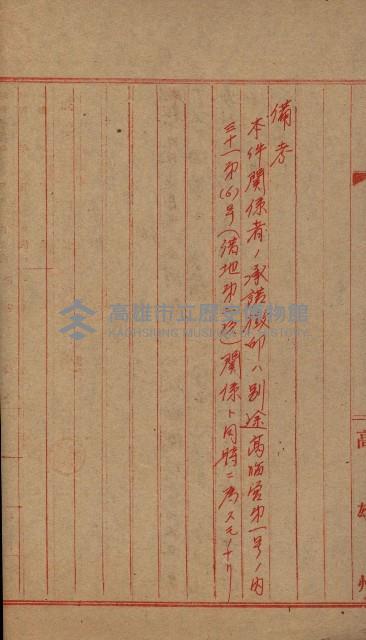 備考
本件関係者ノ承諾徴印ハ別途高海営第一号ノ内
三十一第(6)号(借地第次)関係ト同時ニ為スモノナリ
高雄市立歷史博物館
KAOHSIUNG MUSEUM OF HISTORY
高雄州